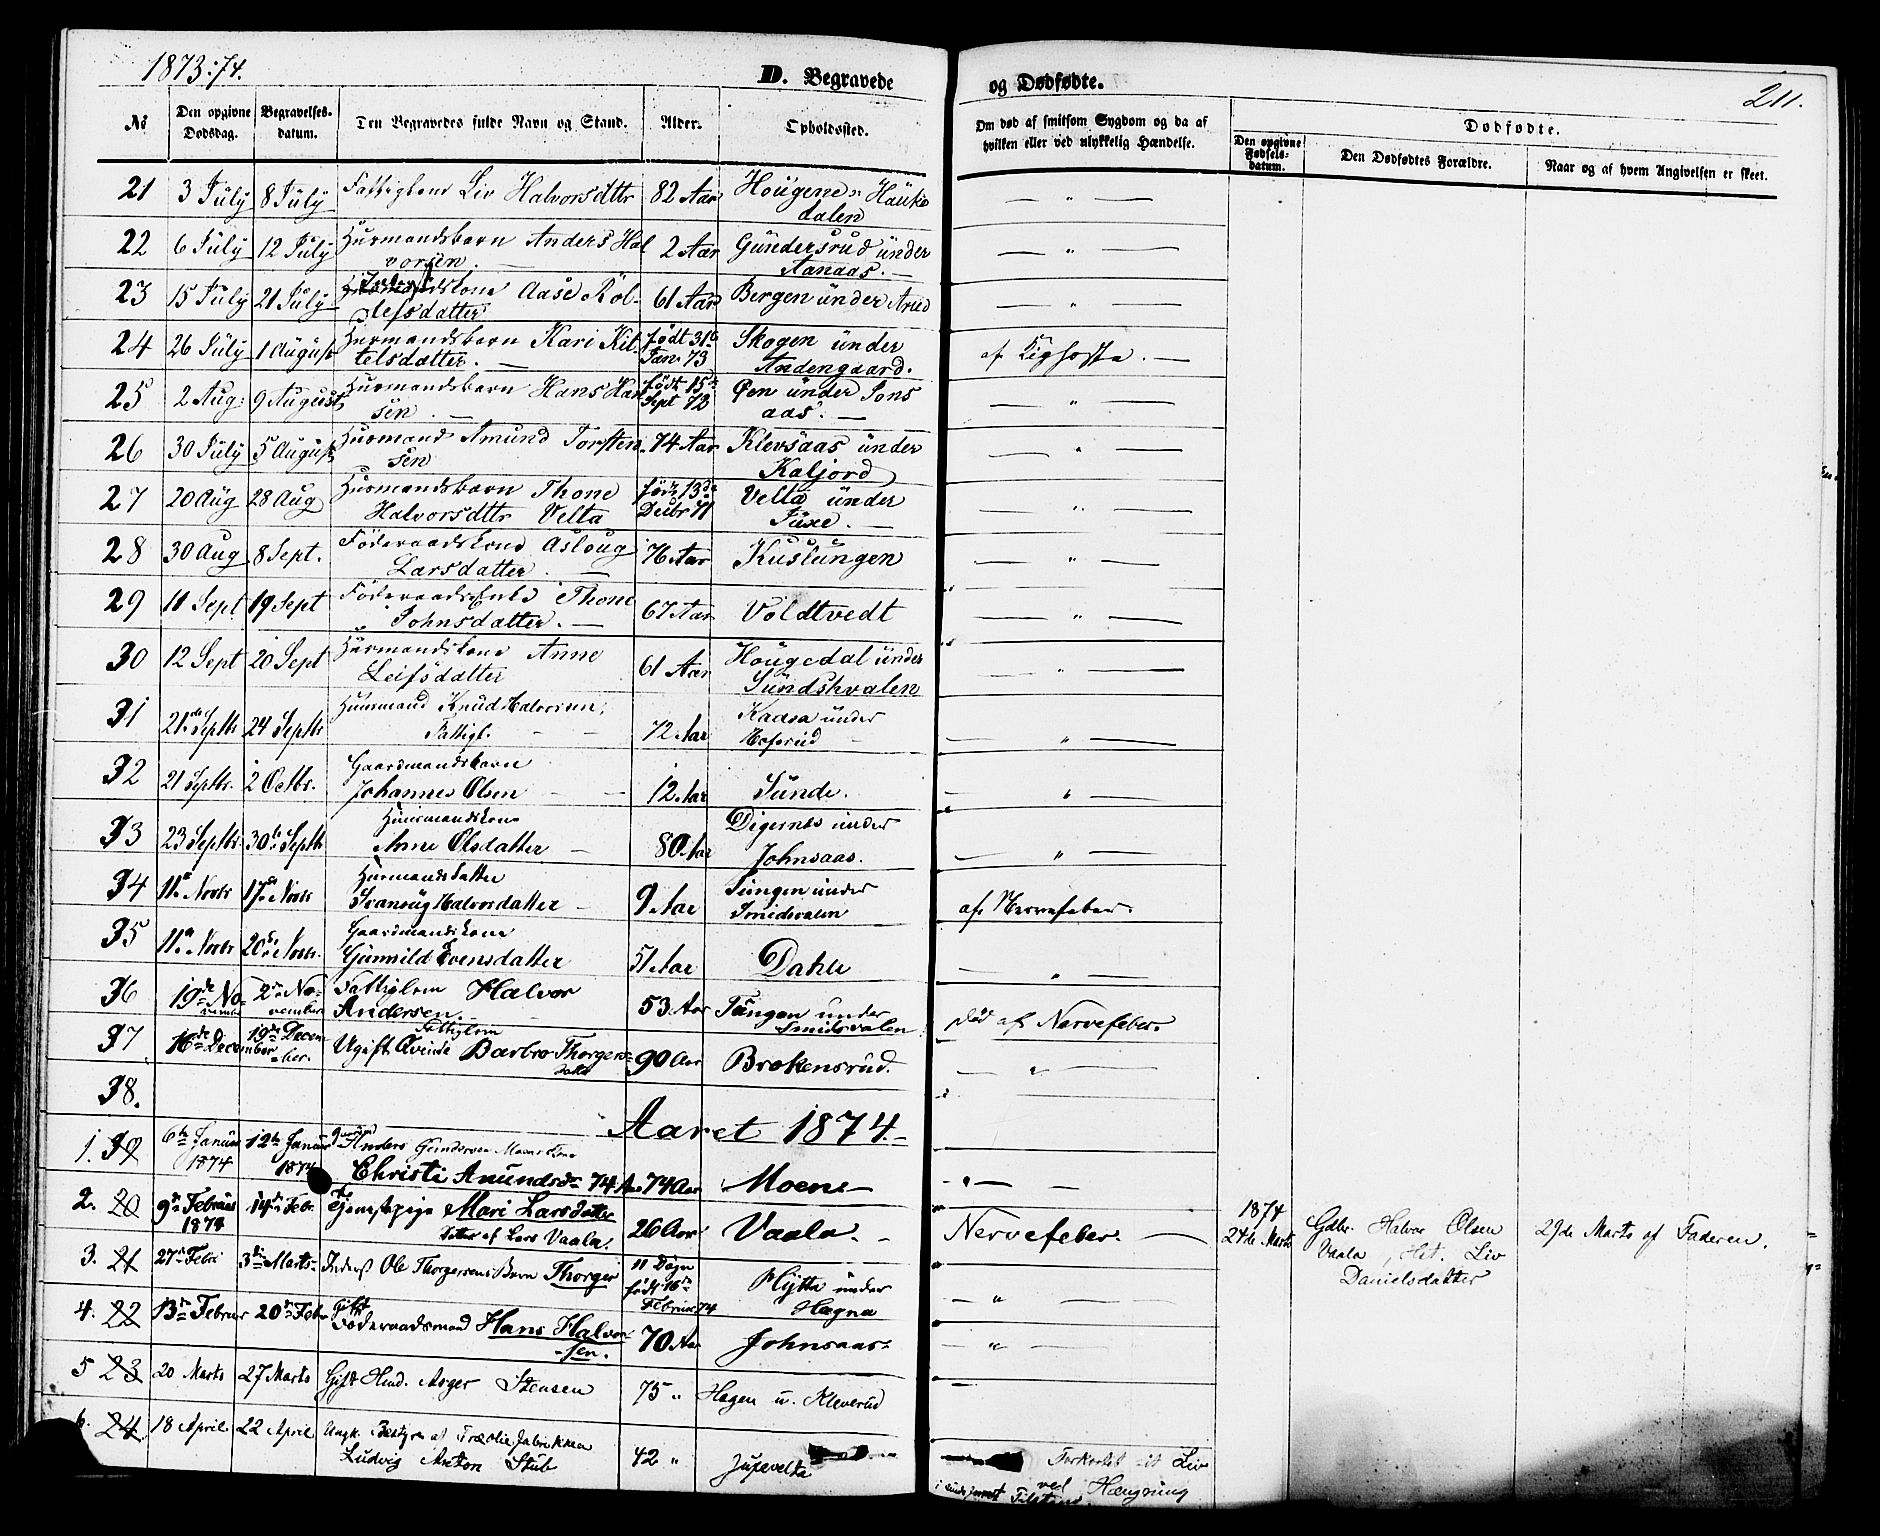 1873:74.
D. Begravede
og Dødfødte.
211.
No
Den opgivne Dødsdag.
Begravelsesdatum.
Den Begravedes fulde Navn og Stand.
Alder.
Opholdssted.
Om død af smitsom Sygdom og da af hvilken eller ved ulykkelig Hændelse.
Dødfødte.
Den opgivne Fødselsdatum.
Den Dødfødtes Forældre.
Naar og af hvem Angivelsen er skeet.
21 3 July 8 July Fattiglem Liv Halvorsdttr 82 Aar Hougene Hauke
dalen
22 6 July 12 July Husmandsbarn Anders Hal 2 Aar Gundersrud under
vorsen. Aanaas.
23 15 July 21 July Aase Rol- 61 Aar Bergen under Aarud
lefsdatter
24 26 July 1 August Husmandsbarn Kari Kit- født 31te Skogen under af Kighoste.
telsdatter. Jan. 73 Andengaard.
25 2 Aug: 9 August Husmandsbarn Hans Han født 15de Øen under Jons
sen. Sept 72 aas.
26 30 July 5 August Husmand Amund Torsten- 74 Aar Klevsaas under
sen Kaljord
27 20 Aug 28 Aug Husmandsbarn Thone født 13de Velta under
Halvorsdttr Velta Decbr 71 Juxe.
28 30 Aug 8 Sept. Föderaadskone Asloug 76 Aar Kuslungen
Larsdatter.
29 11 Sept 19 Sept Föderaads Enke Thone 67 Aar Voldtvedt
Johnsdatter.
30 12 Sept 20 Sept Husmandskone Anne 61 Aar Hougedal under
Leifsdatter Sundskvalen
31 21de Septbr 24 Septbr Husmand Knud Halvorsen, Kaasa under
Fattigl. 72 Aar Hofsrud
32 21 Septbr. 2 Octbr. Gaardmandsbarn
Johannes Olsen 12 Aar Sunde.
33 23 Septbr. 30te Septbr Husmandskone Digernes under
Anne Olsdatter 80 Aar Johnsaas.
34 11te Novbr 17de Novbr Husmandsdatter Tungen under
Svanoug Halvorsdatter 9 Aar Smidsvalen af Nervefeber.
35 11te Novbr 20de Novbr. Gaardmandskone
Gunnild Evensdatter 51 Aar Dahle
36 19de No- 2de No- Fattiglem Halvor 53 Aar Tangen under død af Nervefeber.
vember vember Andersen. Smidsvalen
37 16de December 19de December. Fattiglem
Ugift Qvinde Barbro Thorgers- 90 Aar Brokensrud.
datter
38.
Aaret 1874.
1. 39 6te Januar 12te Januar Anders Gundersen Moens Kone
1874 1874 Christi Amundsdr 74 Aar 74 Aar Moene
2. 20 9de Februar 14de Febr. Tjenestepige Mari Larsdatter
1874 Datter af Lars Vaala. 26 Aar Vaala. Nervefeber.
1874
24de Marts Gdbr. Halvor Olsen 29de Marts af Faderen.
Vaala, Het. Liv
Danielsdatter
3. 21 27de Febr 3de Marts Inderst Ole Thorgersens Barn Thorger 11 Døgn Flytta under
født 16de Hægna
Februar 74
4. 22 13de Februar 20de Febr. Gift
Föderaadsmand Hans Halvor- 70 Aar Johnsaas.
sen.
5 23 20 Marts 27 Marts Gift Hmd. Asger Stensen 75 " Hagen u. Kleverud
6. 24. 18 April 22 April Ungk. Bestyrer af Træoliefabrikken
Ludvig Anton Stub 42 " Juxevelta
Forkortet sit Liv
ved Hængning